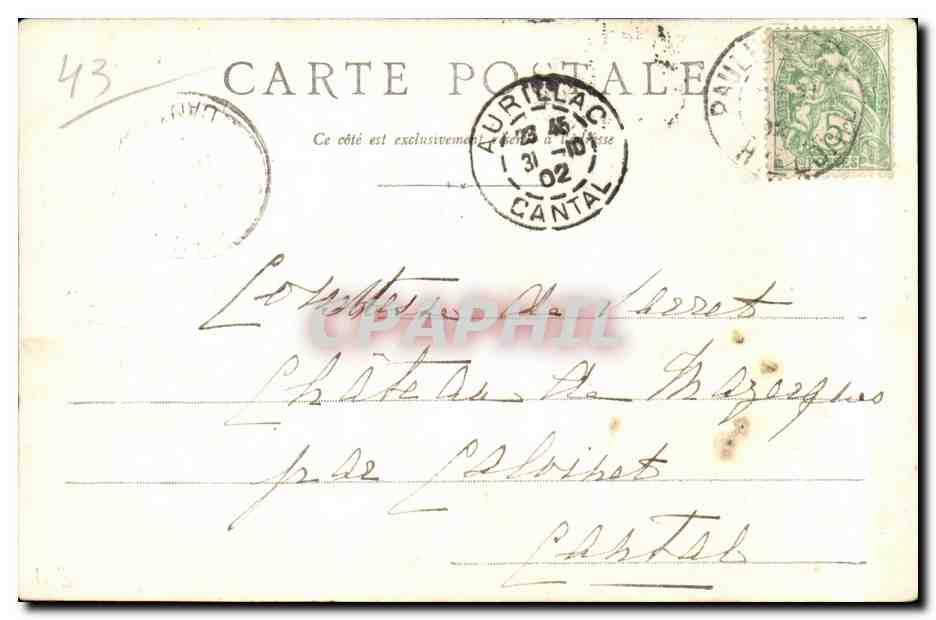 43
CARTE POSTALE
Ce côté est exclusivement réservé à l'adresse
AURILLAC
23 45
31 -10
02
CANTAL
PAUL
5
CPAPHIL
Comtesse de Larret
Château de Mazerques
par Calvinet
Cantal